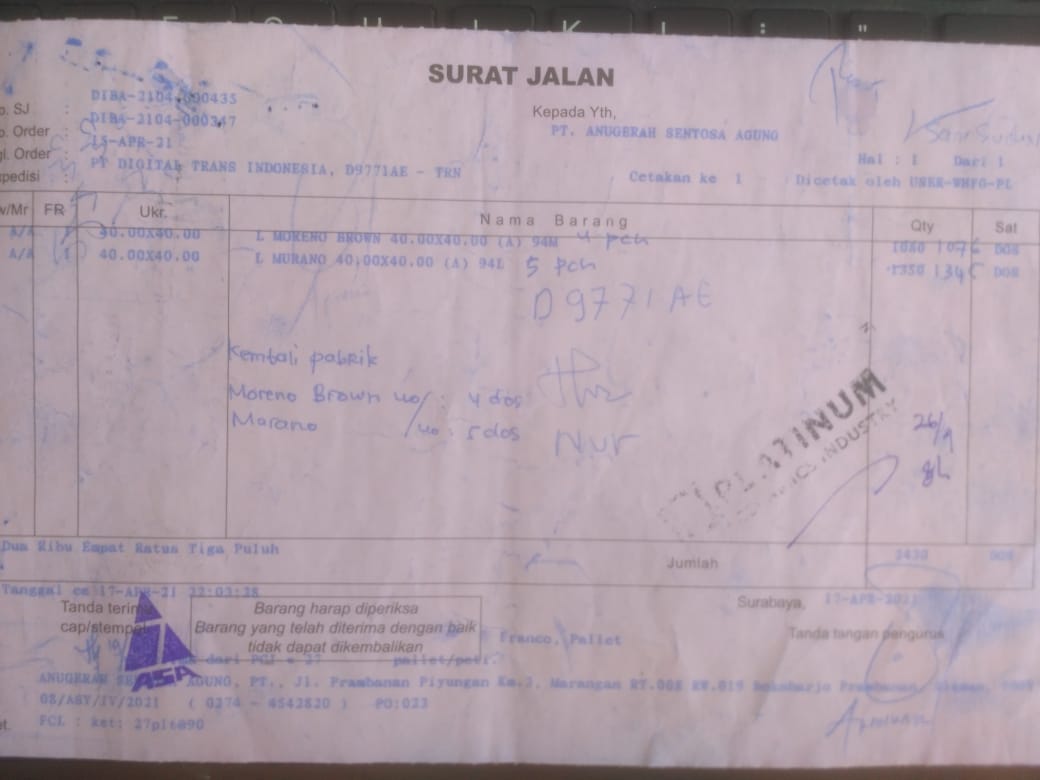 SURAT JALAN
o. SJ : DIBA-2104-000435
o. Order : DIBA-2104-000347
gl. Order : 15-APR-21
spedisi : PT DIGITAL TRANS INDONESIA, D9771AE - TRN
Kepada Yth,
PT. ANUGERAH SENTOSA AGUNG
Hal : 1 Dari 1
Cetakan ke 1 Dicetak oleh USER-WHFG-PL
w/Mr FR Ukr. Nama Barang Qty Sat
A/A 1 40.00X40.00 L MORENO BROWN 40.00X40.00 (A) 94M 4 pch 1080 1076 DOS
A/A 1 40.00X40.00 L MURANO 40.00X40.00 (A) 94L 5 pch 1350 1345 DOS
D 9771 AE
Kembali pabrik
Moreno Brown 40/ : 4 dos
Marano /40 : 5 dos
Nur
PLATINUM
INDUSTRY
Dua Ribu Empat Ratus Tiga Puluh
Jumlah 2430 DOS
Tanggal 17-APR-21 22:03:28
Tanda terima
cap/stempel
Barang harap diperiksa
Barang yang telah diterima dengan baik
tidak dapat dikembalikan
Surabaya, 17-APR-2021
Tanda tangan pengurus
Franco, Pallet
dari PGI = 27 pallet/peti.
ASA
ANUGERAH AGUNG, PT., Jl. Prambanan Piyungan Km.3, Marangan RT.008 RW.019 Bokoharjo Prambanan, Sleman,
08/ASY/IV/2021 ( 0274 - 4542820 ) PO:023
FCL : ket: 27plt@90